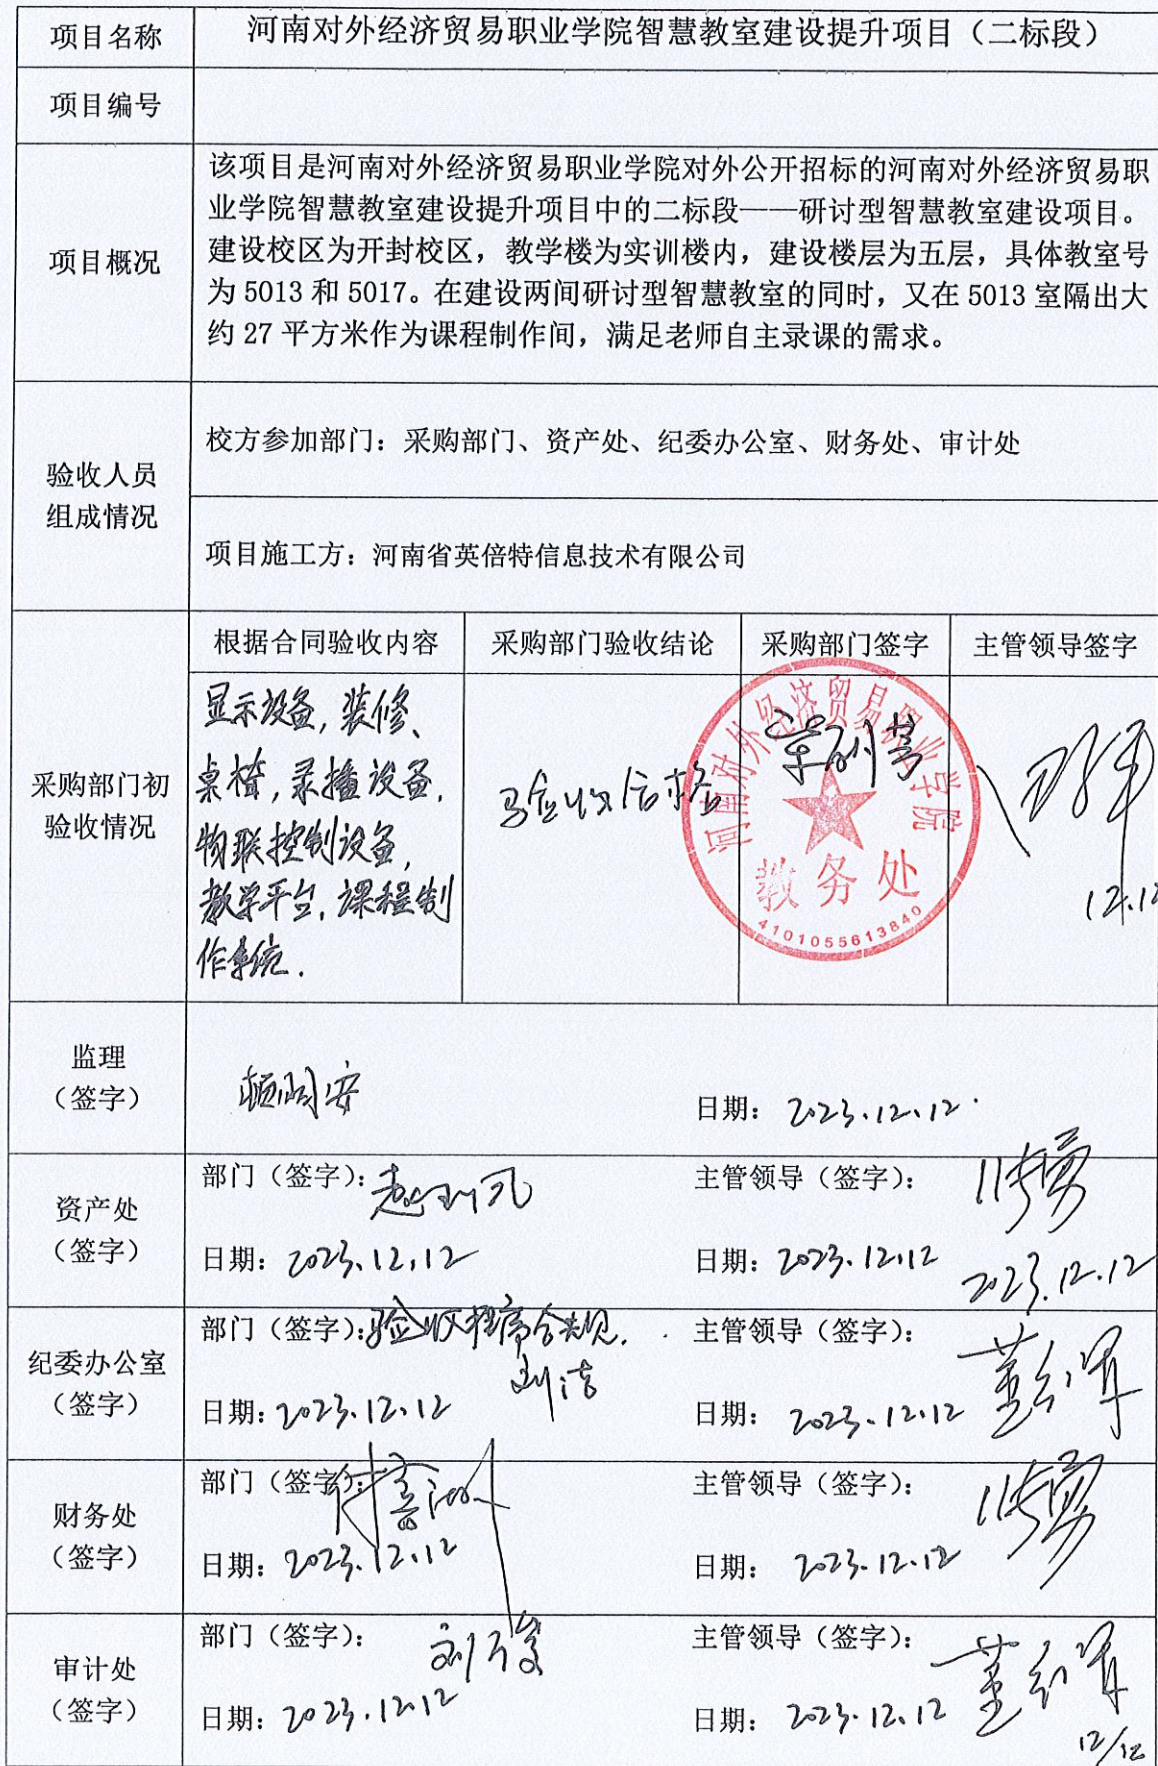 项目名称
河南对外经济贸易职业学院智慧教室建设提升项目（二标段）
项目编号
项目概况
该项目是河南对外经济贸易职业学院对外公开招标的河南对外经济贸易职
业学院智慧教室建设提升项目中的二标段——研讨型智慧教室建设项目。
建设校区为开封校区，教学楼为实训楼内，建设楼层为五层，具体教室号
为 5013 和 5017。在建设两间研讨型智慧教室的同时，又在 5013 室隔出大
约 27 平方米作为课程制作间，满足老师自主录课的需求。
验收人员
组成情况
校方参加部门：采购部门、资产处、纪委办公室、财务处、审计处
项目施工方：河南省英倍特信息技术有限公司
采购部门初
验收情况
根据合同验收内容
采购部门验收结论
采购部门签字
主管领导签字
显示设备，装修、
桌椅，录播设备，
物联控制设备，
教学平台，课程制
作系统．
验收合格
河南对外经济贸易职业学院
教务处
4101055613840
12.12
监理
（签字）
日期： 2023.12.12
资产处
（签字）
部门（签字）：
主管领导（签字）：
日期：2023.12.12
日期：2023.12.12
2023.12.12
纪委办公室
（签字）
部门（签字）：验收程序合规．
刘洁
主管领导（签字）：
日期：2023.12.12
日期：2023.12.12
财务处
（签字）
部门（签字）：
主管领导（签字）：
日期：2023.12.12
日期：2023.12.12
审计处
（签字）
部门（签字）：
主管领导（签字）：
日期：2023.12.12
日期：2023.12.12
12/12